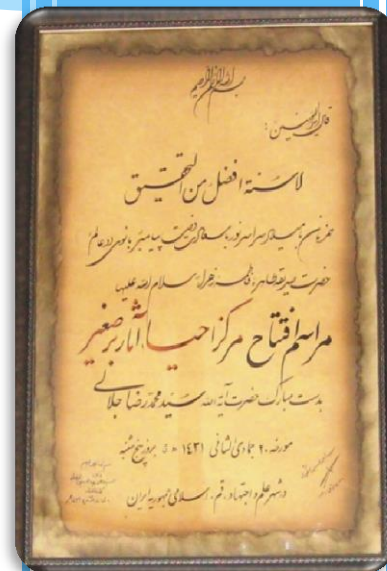 بسم الله الرحمن الرحیم
قال امیرالمؤمنین:
لا سنة افضل من التحقیق
همزمان با میلاد سراسر نور بانوی دو عالم
حضرت صدیقه طاهره فاطمه زهرا سلام الله علیها
مراسم افتتاح مرکز احیاء آثار برصغیر
بدست مبارک حضرت آیة الله سید محمد رضا جلالی
مورخه ۲۰ جمادی الثانی ۱۴۳۱ ه ق بروز پنج شنبه
در شهر علم و اجتهاد، قم، اسلامی جمهوریه ایران